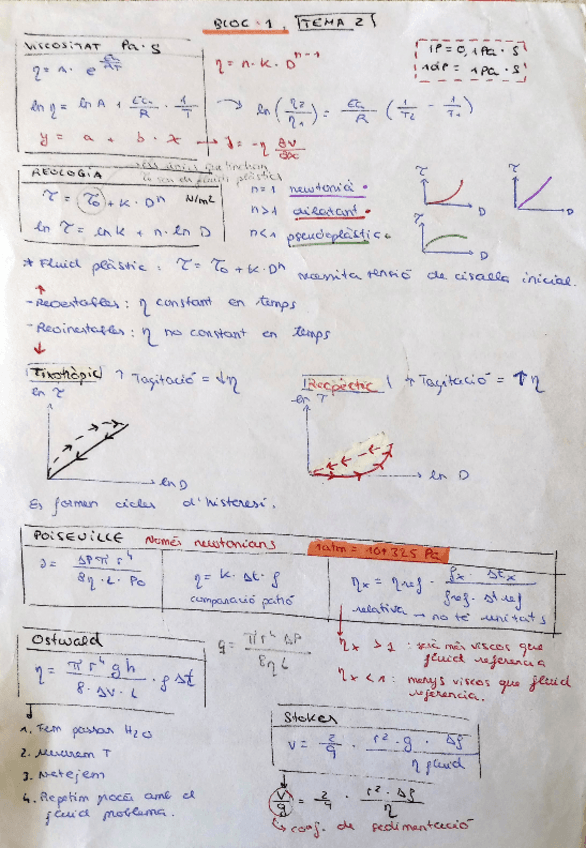 BLOC · 1. TEMA 2
VISCOSITAT Pa·s
η = A · e^(Ea/RT)
η = A · K · D^(n-1)
1P = 0,1Pa·s
10P = 1Pa·s
ln η = ln A + Ea/R · 1/T → ln(η2/η1) = Ea/R (1/T2 - 1/T1)
y = a + b · x → J = -η ∂v/∂x
REOLOGIA
τ = τ0 + K · D^n N/m2
ln τ = ln K + n · ln D
n=1 newtonià.
n>1 dilatant.
n<1 pseudoplàstic.
τ D
τ D
τ D
* Fluid plàstic: τ = τ0 + K·D^n necessita tensió de cisalla inicial.
- Reoestables: η constant en temps
- Reoinestables: η no constant en temps
Tixotròpic ↑ Tagitació = ↓η
Reopèctic ↑ Tagitació = ↑η
ln τ
ln D
ln τ
ln D
Es formen cicles d'histeresi.
POISEVILLE Només newtonians 1atm = 101325 Pa
J = ΔP π r^4 / 8η · L · P0
η = K · Δt · ρ
comparació patró
ηx = ηref · ρx · Δtx / ρref · Δt ref
relativa → no té unitats
Ostwald
η = π r^4 g h / 8 · ΔV · L · ρ Δt
q = π r^4 ΔP / 8 η L
ηx > 1 : serà més viscos que fluid referencia
ηx < 1 : menys viscos que fluid referencia.
1. Fem passar H2O
2. Mesurem T
3. Netejem
4. Repetim procés amb el fluid problema.
Stokes
v = 2/9 · r^2 · g · Δρ / η fluid
v/g = 2/9 · r^2 · Δρ / η
↳ coef. de sedimentació